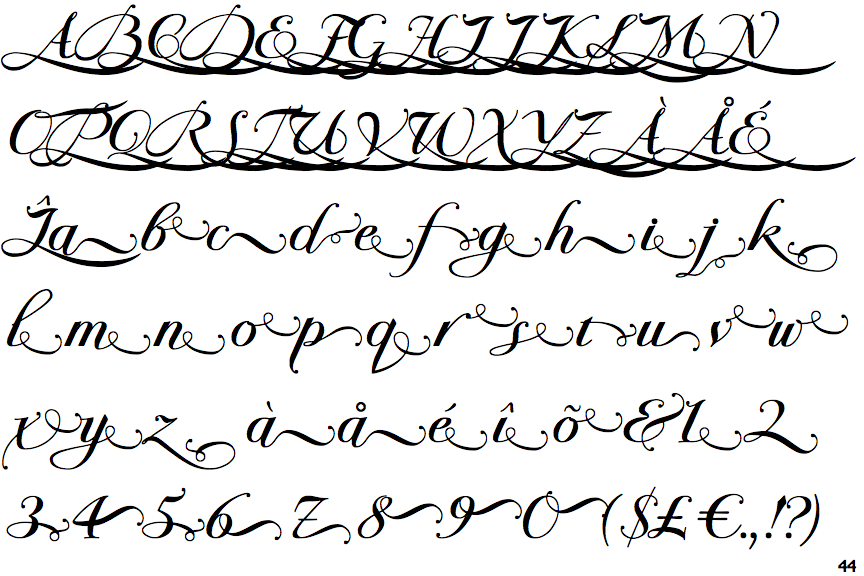 ABCDEFGHIJKLMN
OPQRSTUVWXYZÀÅÉ
Îabcdefghijk
lmnopqrstuvw
xyzàåéîõ&12
34567890($£€.,!?)
44